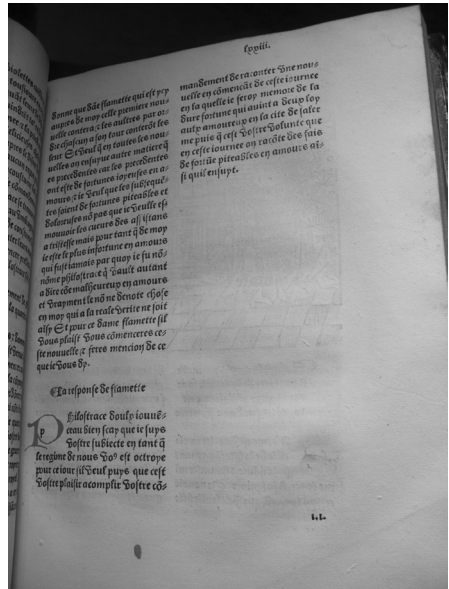 lxxiii.
donne que dāe flamette qui est icy
aupres de moy celle premiere nou-
uelle contera ⁊ les aultres par or-
dre chascun a son tour conterōt les
leur Et veul q̄ en toutes les nou-
uelles on ensuyue autre matiere q̄
es precedentes car les precedentes
ont este de fortunes ioyeuses en a-
mours: ie veul que les subseque-
tes soient de fortunes piteables et
doloreuses nō pas que ie veulle es-
mouuoir les cueurs des assistans
a tristesse mais pour tant q̄ de moy
ie este le plus infortune en amours
qui fust iamais par quoy ie fu nō-
nōme philostrace q̄ vault autant
a dire cōe malheureux en amours
et vrayment le nō ne denote chose
en moy qui a la reale verite ne soit
aisy Et pour ce dame flamette sil
vous plaist vous cōmenceres ce-
ste nouuelle ⁊ feres mencion de ce
que ie vous dy.
¶ La response de flamette
p Philostrace doulx iouuē-
ceau bien scay que ie suys
vostre subiecte en tant q̄
le regime de nous voꝰ est octroye
pour ce iour sil veul puys que cest
vostre plaisir acomplir vostre cō-
mandement de raconter vne nou-
uelle en cōmencāt de ceste iournee
en la quelle ie feray memore de la
dure fortune qui auint a deux loy
aulx amoureux en la cite de salce
me puis q̄ cest vostre volunte que
en ceste iournee on racōte des fais
de fortūe piteables en amours ai-
si quil ensuyt.
i.i.